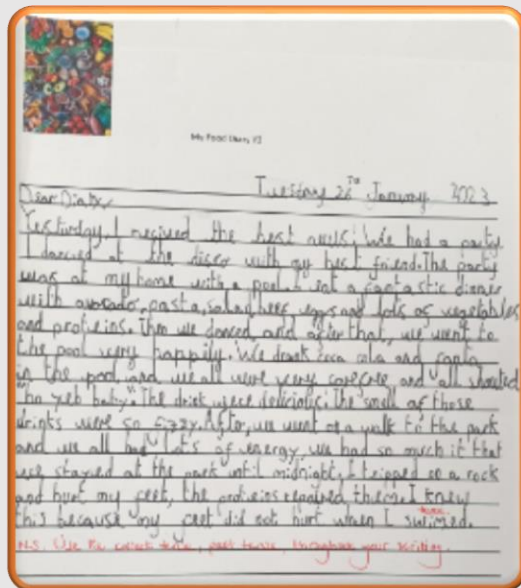 My Food Diary #2
Tuesday 26th January 2023
Dear Diary,
Yesterday, I recived the best news; We had a party.
I danced at the disco with my best friend. The party
was at my home with a pool. I eat a fantastic dinner
with avocado, pasta, salad, beef, eggs and lots of vegetables
and proteins. Then we danced and after that, we went to
the pool very happily. We drank coca cola and fanta
in the pool and we all were very carefree and all shouted
"ho yeh baby". The drink were delicious. The smell of those
drinks were so fizzy. After, we went of a walk to the park
and we all had lots of energy, we had so much it that
we stayed at the park until midnight. I tripped of a rock
and hurt my feet, the proteins repaired them. I knew
this because my feet did not hurt when I swimed.
N.S. Use the correct tense, past tense, throughout your writing.